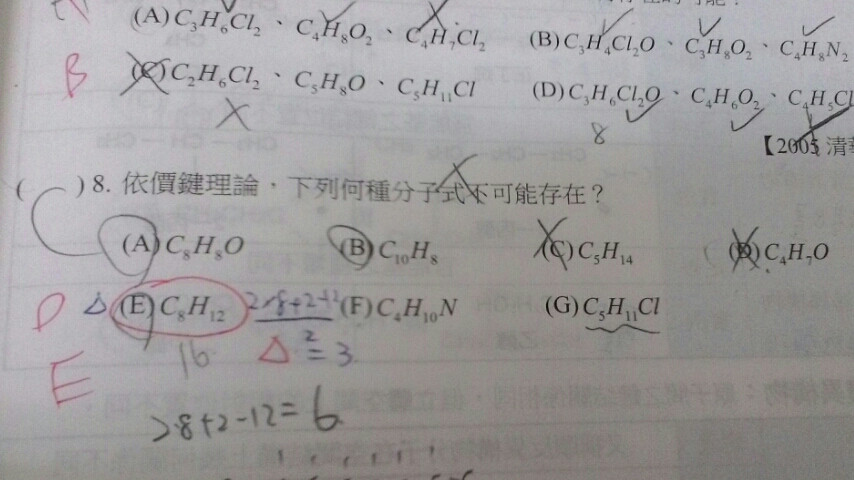 (A) C₃H₆Cl₂、C₄H₈O₂、C₄H₇Cl₂ (B) C₃H₄Cl₂O、C₃H₈O₂、C₄H₈N₂
B (C) C₂H₆Cl₂、C₅H₈O、C₅H₁₁Cl (D) C₃H₆Cl₂O、C₄H₆O₂、C₄H₅Cl
8
【2005 清華
( ) 8. 依價鍵理論，下列何種分子式不可能存在？
(A) C₈H₈O (B) C₁₀H₈ (C) C₅H₁₄ (D) C₄H₇O
D △ (E) C₈H₁₂ 2×8+2-12 (F) C₄H₁₀N (G) C₅H₁₁Cl
16 △ 2 = 3
E
2×8+2-12=6